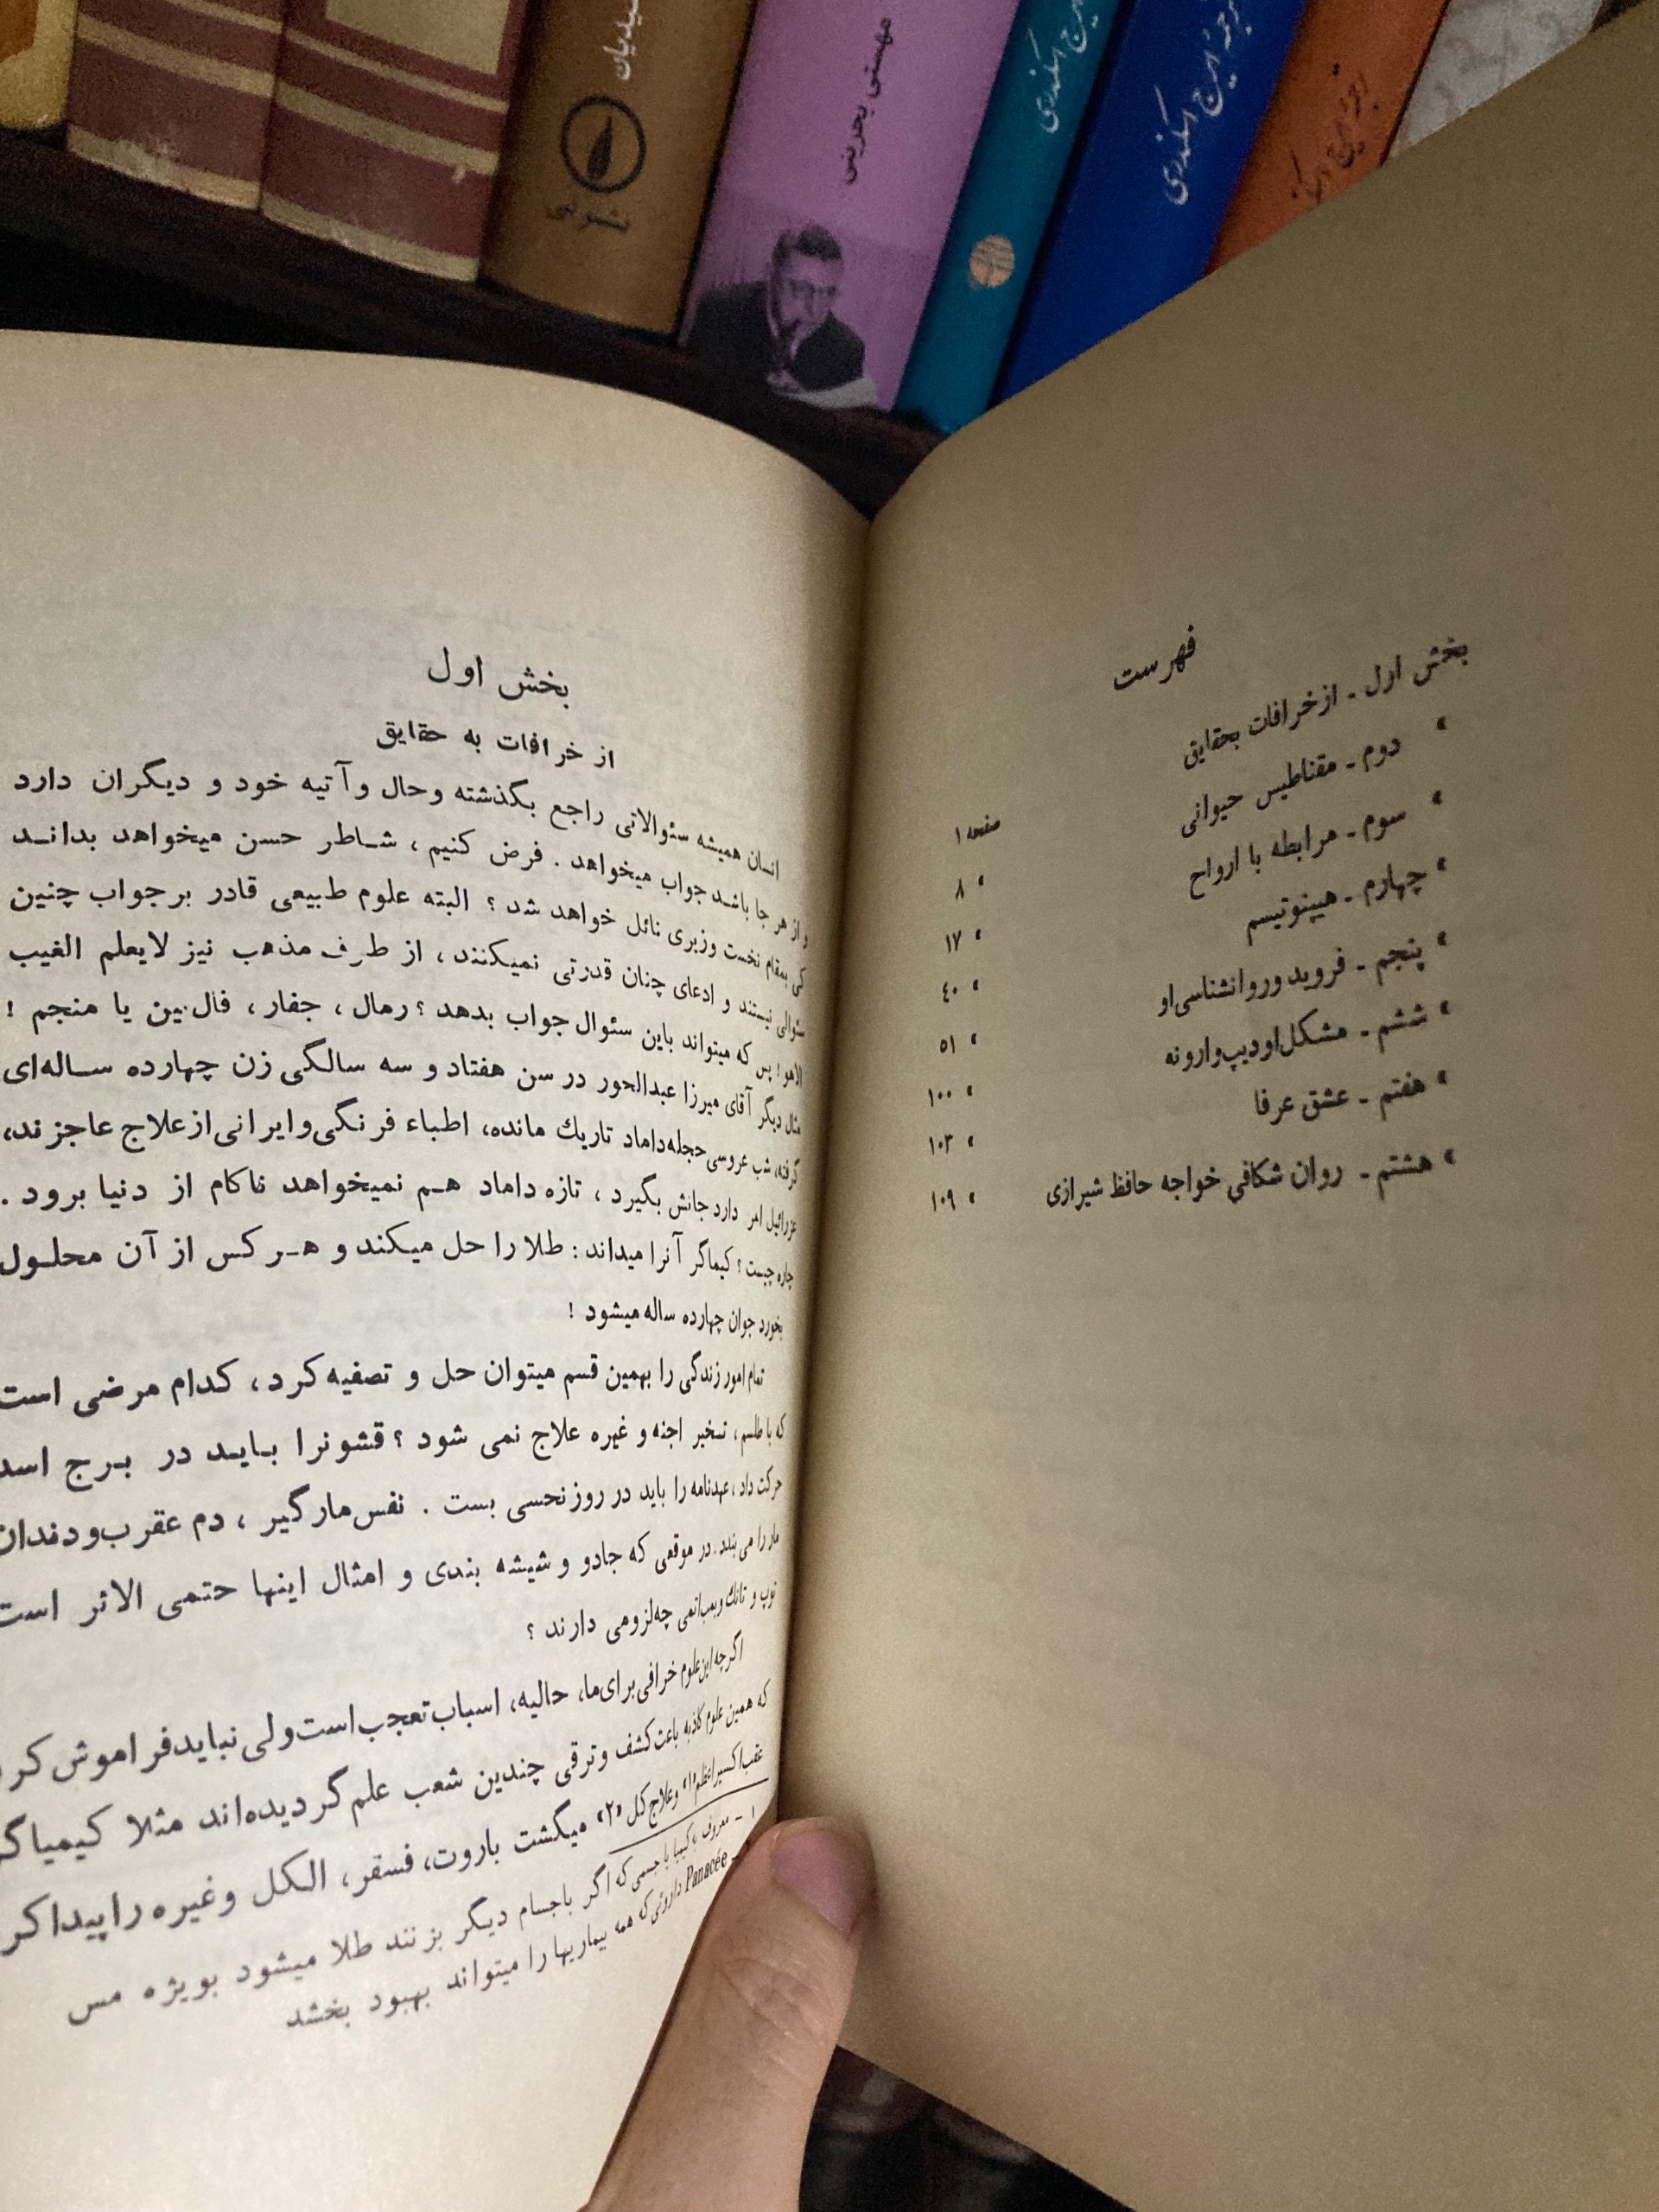 مهستی بحرینی
ایرج اسکندری
ترجمهٔ ایرج اسکندری
نشر نی
فهرست
بخش اول ـ از خرافات بحقایق صفحه ۱
» دوم ـ مقناطیس حیوانی » ۸
» سوم ـ مرابطه با ارواح » ۱۷
» چهارم ـ هیپنوتیسم » ٤۰
» پنجم ـ فروید و روانشناسی او » ۵۱
» ششم ـ مشکل اودیپ وارونه » ۱۰۰
» هفتم ـ عشق عرفا » ۱۰۳
» هشتم ـ روان شکافی خواجه حافظ شیرازی » ۱۰۹
بخش اول
از خرافات به حقایق
انسان همیشه سئوالاتی راجع بگذشته وحال و آتیه خود و دیگران دارد
و از هر جا باشد جواب میخواهد . فرض کنیم ، شاطر حسن میخواهد بداند
کی بمقام نخست وزیری نائل خواهد شد ؟ البته علوم طبیعی قادر بر جواب چنین
سئوالی نیستند و ادعای چنان قدرتی نمیکنند ، از طرف مذهب نیز لایعلم الغیب
الاهو ! پس که میتواند باین سئوال جواب بدهد ؟ رمال ، جفار ، فال بین یا منجم !
مثال دیگر آقای میرزا عبدالحور در سن هفتاد و سه سالگی زن چهارده ساله‌ای
گرفته، شب عروسی حجله داماد تاریك مانده، اطباء فرنگی و ایرانی از علاج عاجزند،
عزرائیل امر دارد جانش بگیرد ، تازه داماد هم نمیخواهد ناکام از دنیا برود .
چاره چیست ؟ کیماگر آنرا میداند : طلا را حل میکند و هر کس از آن محلول
بخورد جوان چهارده ساله میشود !
تمام امور زندگی را بهمین قسم میتوان حل و تصفیه کرد ، کدام مرضی است
که با طلسم ، تسخیر اجنه و غیره علاج نمی شود ؟ قشونرا باید در برج اسد
حرکت داد ، عهدنامه را باید در روز نحسی بست . نفس مارگیر ، دم عقرب و دندان
مار را می بندد . در موقعی که جادو و شیشه بندی و امثال اینها حتمی الاثر است
توپ و تانك و بمب اتمی چه لزومی دارند ؟
اگرچه این علوم خرافی برای ما، حالیه، اسباب تعجب است ولی نباید فراموش کرد
که همین علوم کاذبه باعث کشف و ترقی چندین شعب علم گردیده‌اند مثلا کیمیاگر
عقب اکسیر اعظم «۱» و علاج کل «۲» میگشت باروت، فسفر، الکل وغیره را پیدا کر
۱ ـ معروف با کیمیا یا جسمی که اگر باجسام دیگر بزنند طلا میشود بویژه مس
ـ Panacée داروئی که همه بیماریها را میتواند بهبود بخشد